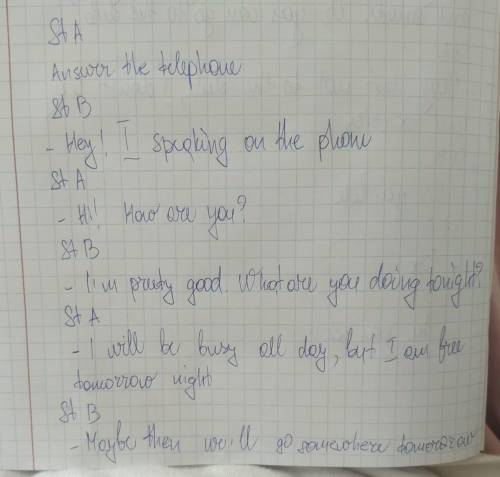 St A
Answer the telephone
St B
- Hey! I speaking on the phone
St A
- Hi! How are you?
St B
- I'm pretty good. What are you doing tonight?
St A
- I will be busy all day, but I am free
tomorrow night
St B
- Maybe then we'll go somewhere tomorrow